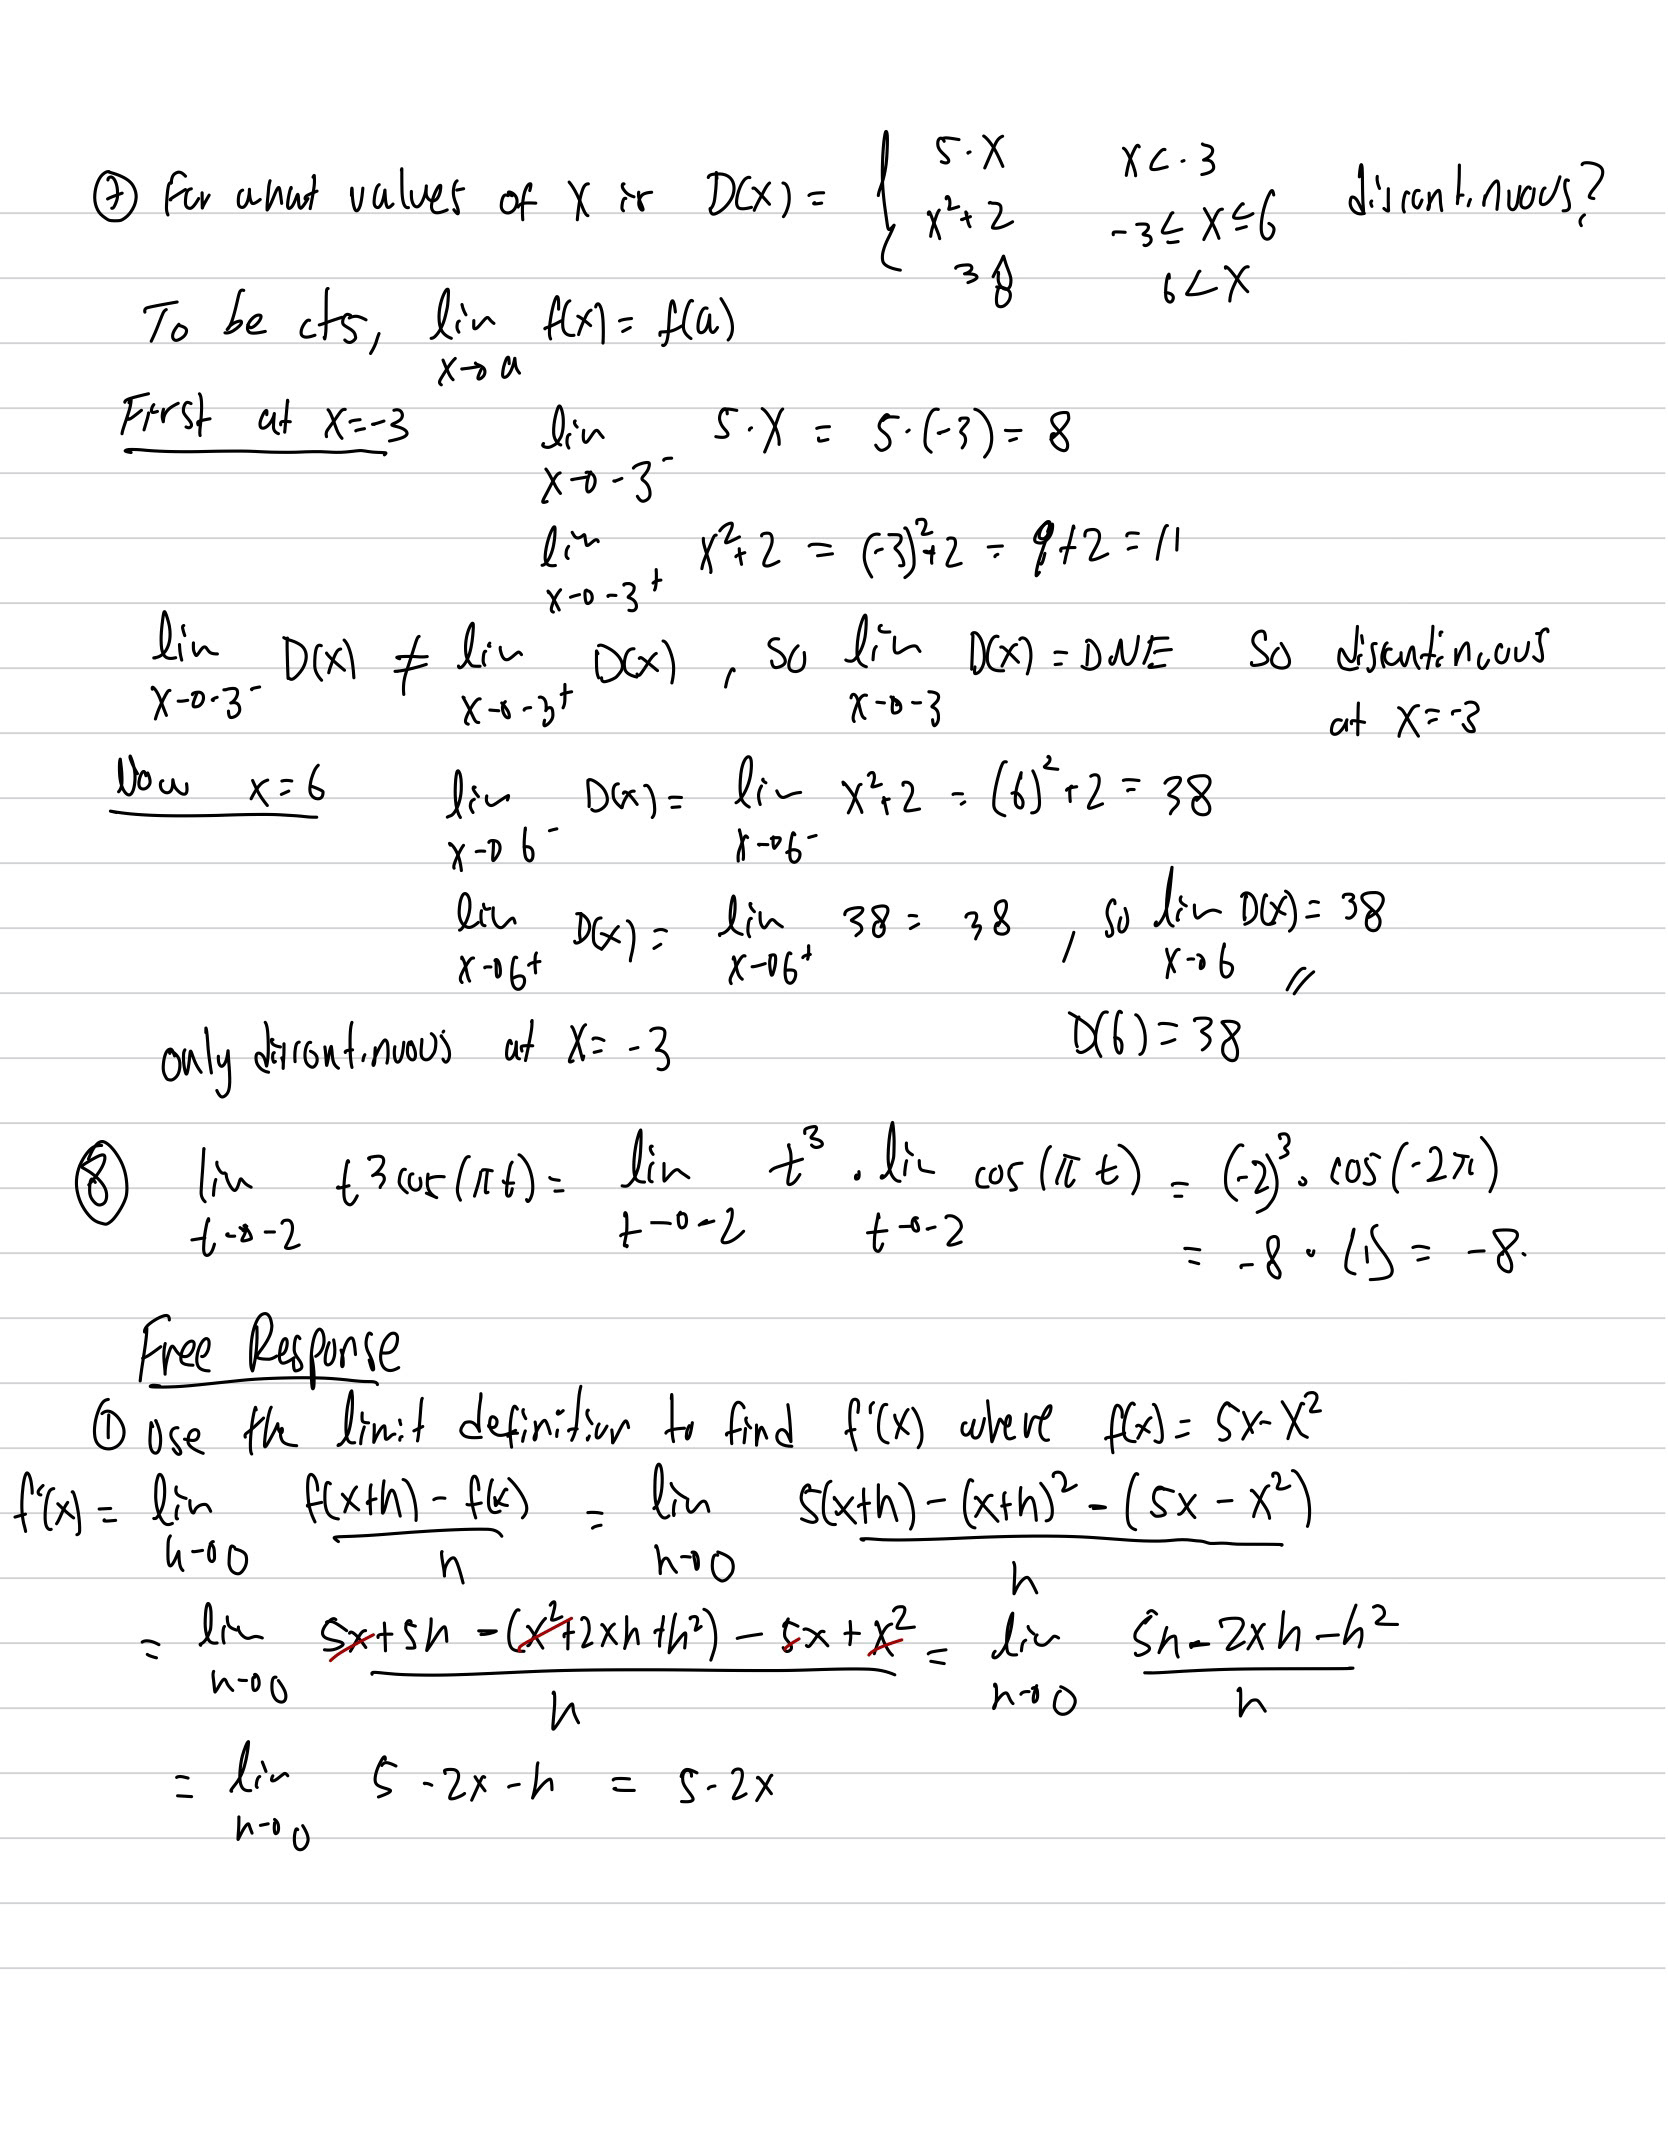 ⑦ For what values of x is D(x) = { 5-x x<-3 discontinuous?
x²+2 -3≤x≤6
38 6<x
To be cts, lim x→a f(x) = f(a)
First at x=-3 lim x→-3⁻ 5-x = 5-(-3) = 8
lim x→-3⁺ x²+2 = (-3)²+2 = 9+2 = 11
lim x→-3⁻ D(x) ≠ lim x→-3⁺ D(x), so lim x→-3 D(x) = DNE So discontinuous
at x=-3
Now x=6 lim x→6⁻ D(x) = lim x→6⁻ x²+2 = (6)²+2 = 38
lim x→6⁺ D(x) = lim x→6⁺ 38 = 38, so lim x→6 D(x) = 38
//
D(6) = 38
only discontinuous at x= -3
⑧ lim t→-2 t³cos(πt) = lim t→-2 t³ · lim t→-2 cos(πt) = (-2)³ · cos(-2π)
= -8 · (1) = -8.
Free Response
① Use the limit definition to find f'(x) where f(x) = 5x-x²
f'(x) = lim h→0 (f(x+h) - f(x))/h = lim h→0 (5(x+h) - (x+h)² - (5x - x²))/h
= lim h→0 (5x+5h - (x²+2xh+h²) - 5x + x²)/h = lim h→0 (5h-2xh-h²)/h
= lim h→0 5-2x-h = 5-2x